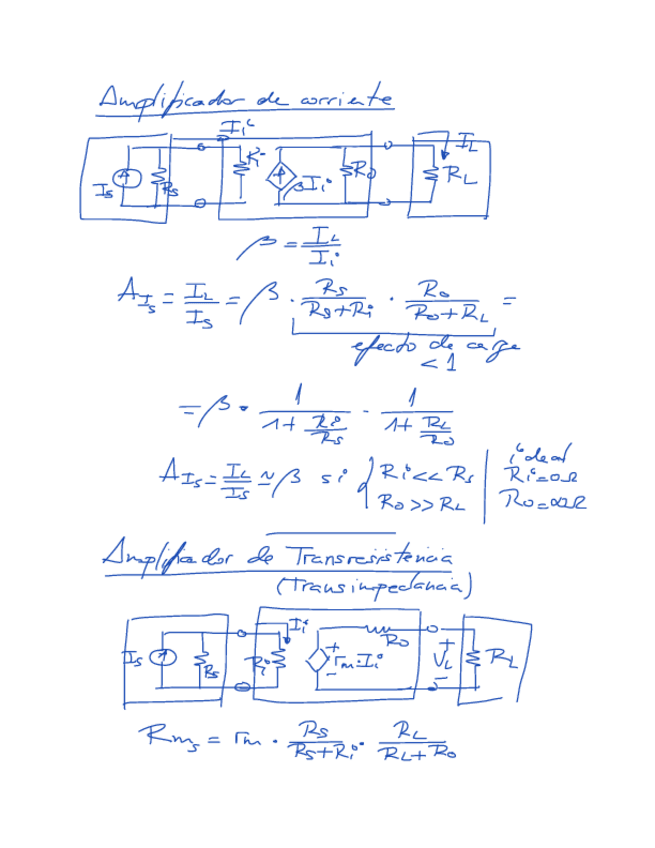 Amplificador de corriente
Ii
Is Rs Ri βIi Ro IL RL
β = IL/Ii
AIs = IL/Is = β · Rs/(Rs+Ri) · Ro/(Ro+RL) =
efecto de carga
< 1
= β · 1/(1+Ri/Rs) · 1/(1+RL/Ro)
AIs = IL/Is ≃ β si { Ri << Rs | ideal Ri=0Ω
Ro >> RL | Ro=∞Ω
Amplificador de Transresistencia
(Transimpedancia)
Is Rs Ii Ri + rm·Ii Ro + VL - RL
Rms = rm · Rs/(Rs+Ri) · RL/(RL+Ro)